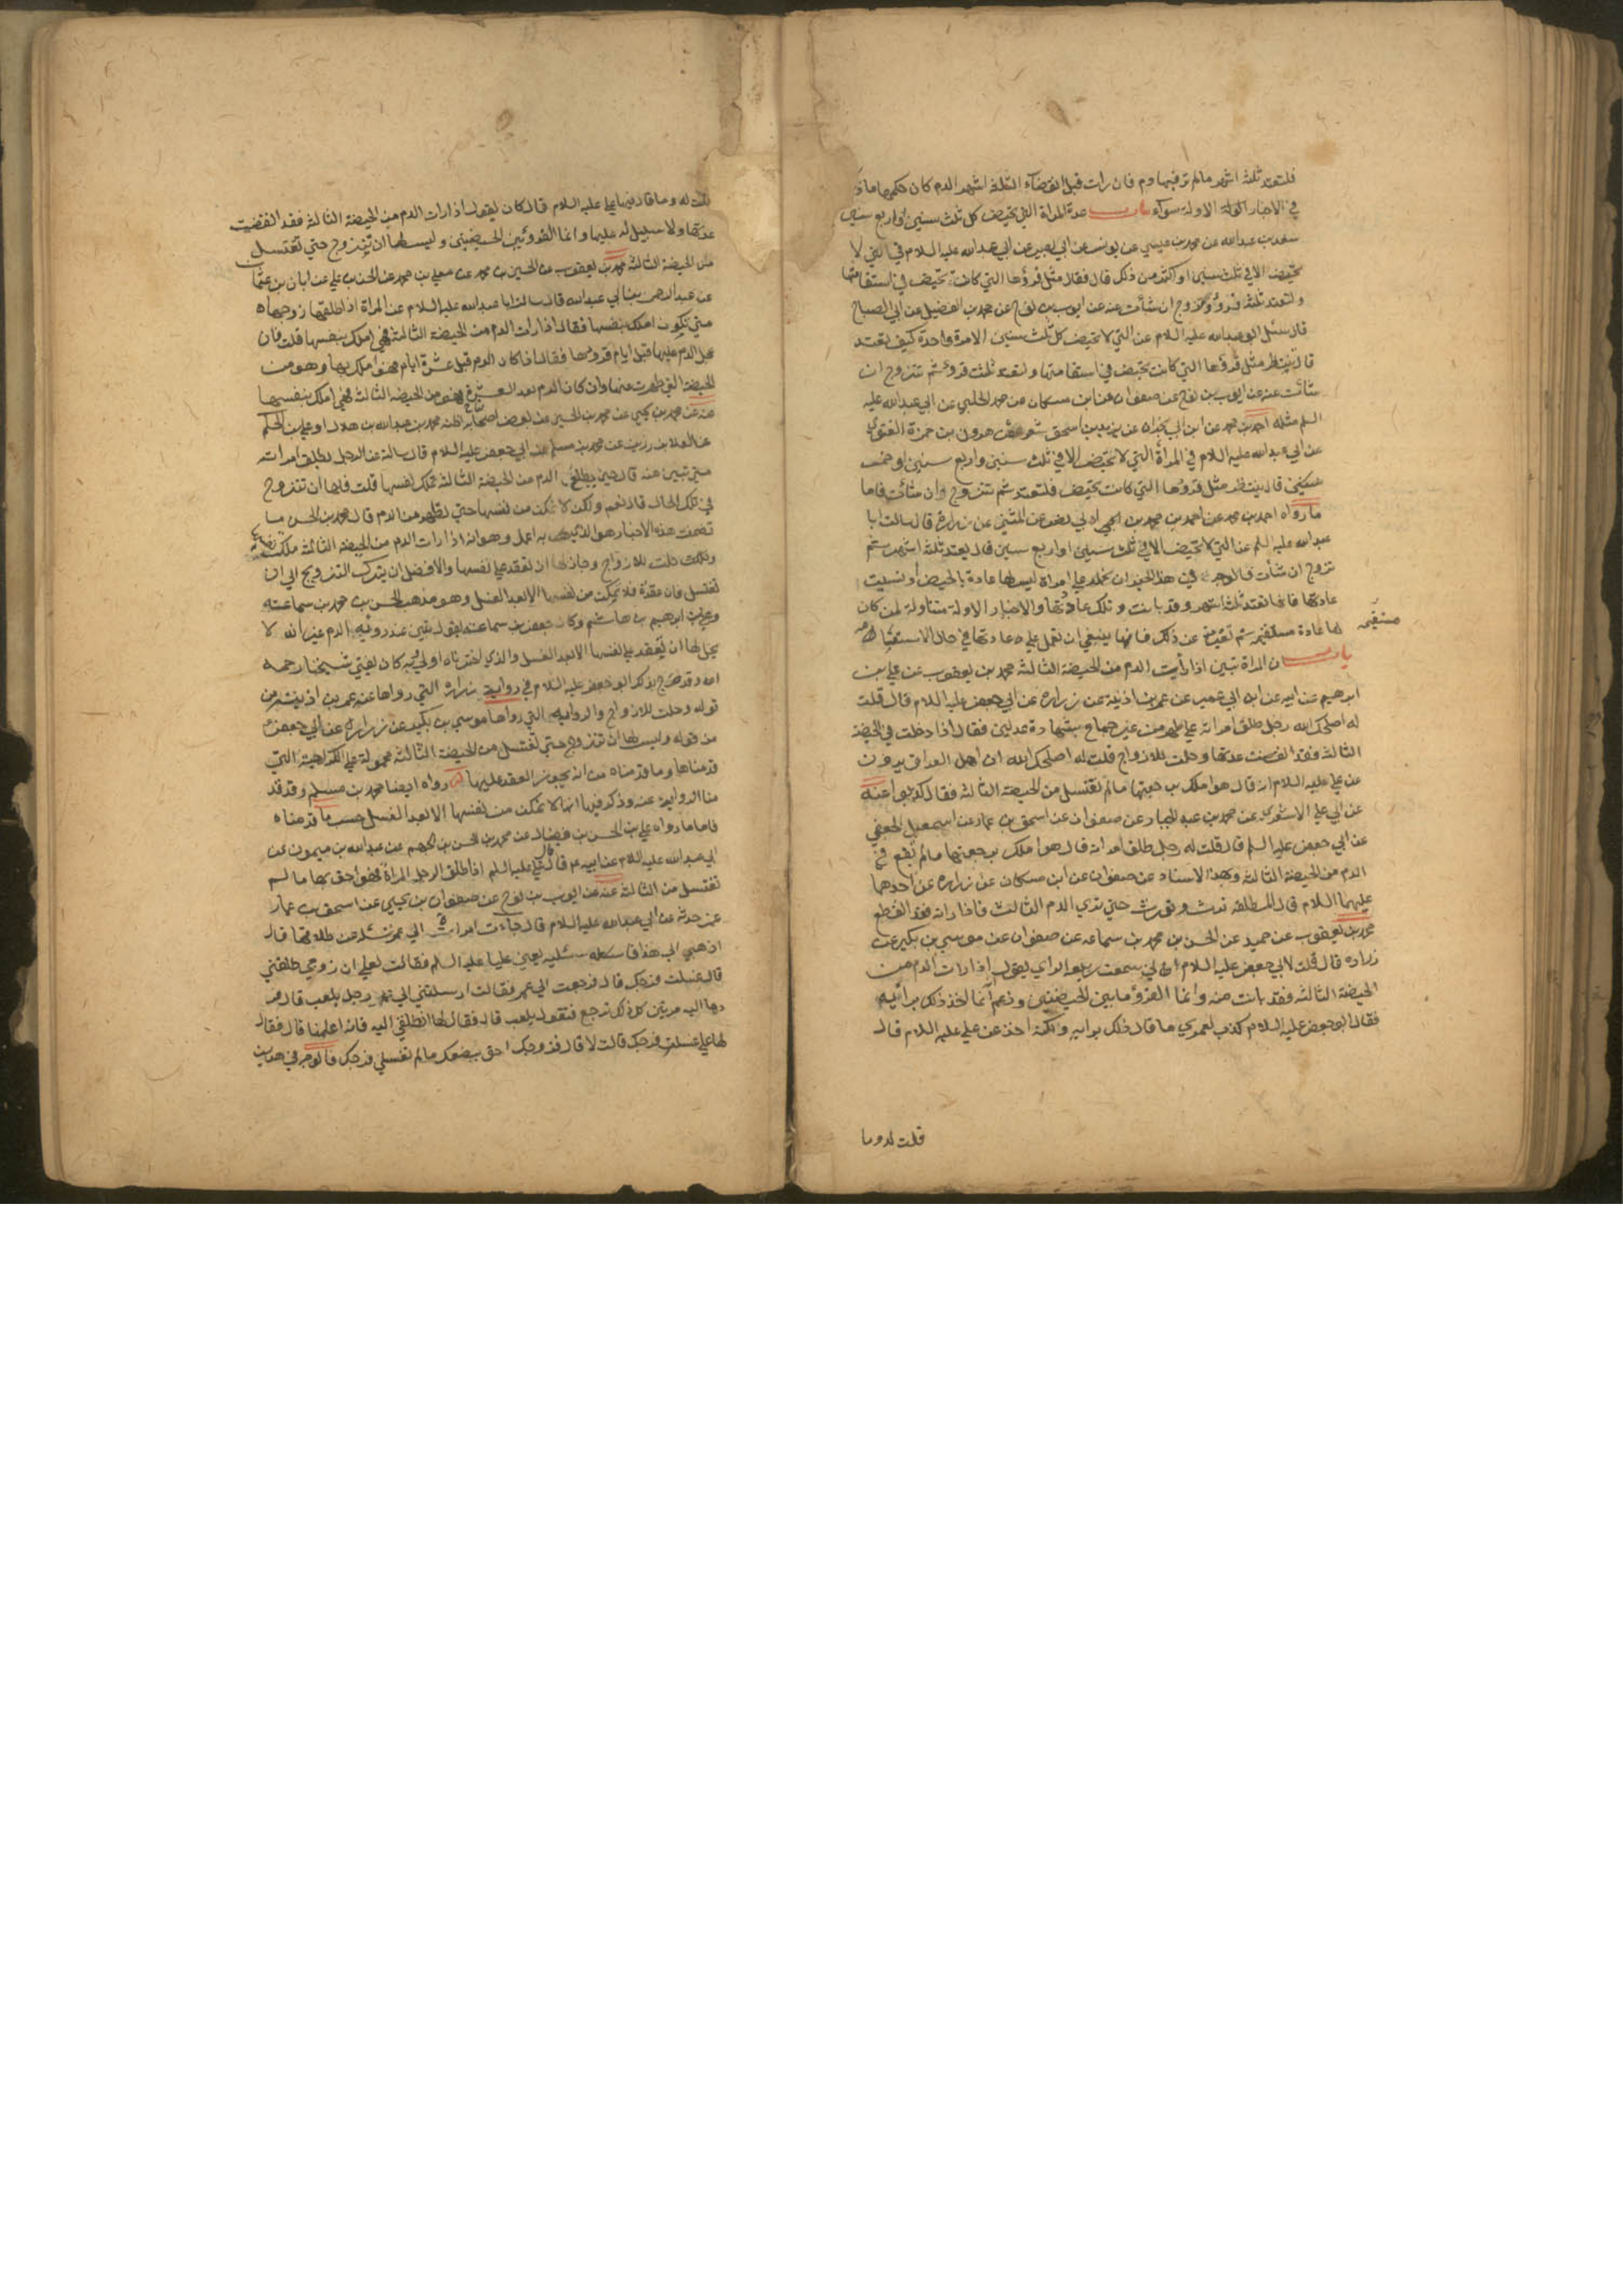 فلتعتد ثلثة اشهر مالم تر فيها دم فان رات قبل انقضاء الثلثة اشهر الدم كان حكمها ما ذكر
في الاخبار الاولة سواء باب عدة المراة التي تحيض كل ثلث سنين او اربع سنين
سعد بن عبدالله عن محمد بن عيسى عن يونس عن ابي بصير عن ابي عبدالله عليه السلام في التي لا
تحيض الا في ثلث سنين او اكثر من ذلك قال فقال مثل قروها التي كانت تحيض في استقامتها
ولتعتد ثلثة قروء وتزوج ان شائت عنه عن ايوب بن نوح عن محمد بن الفضيل عن ابي الصباح
قال سئل ابو عبدالله عليه السلام عن التي لا تحيض كل ثلث سنين الا مرة واحدة كيف تعتد
قال ينتظر مثل قروها التي كانت تحيض في استقامتها ولتعتد ثلثة قروء ثم تتزوج ان
شائت عنه عن ايوب بن نوح عن صفوان عن ابن مسكان عن محمد الحلبي عن ابي عبدالله عليه
السلم مثله احمد بن محمد عن ابن ابي نجران عن يزيد بن اسحق شعر عن هرون بن حمزة الغنوي
عن ابي عبدالله عليه السلام في المراة التي لا تحيض الا في ثلث سنين واربع سنين او خمس
سنين قال ينتظر مثل قروها التي كانت تحيض فلتعتد ثم تتزوج وان شائت فاما
ما رواه احمد بن محمد عن احمد بن محمد بن ابي نصر عن المثني عن زرارة قال سالت ابا
عبدالله عليه السلم عن التي لا تحيض الا في ثلث سنين او اربع سنين قال يعتد ثلثة اشهر ثم
تتزوج ان شائت فالوجه في هذا الخبر ان نحمله على امراة ليس لها عادة بالحيض او نسيت
عادتها فانها تعتد ثلثة اشهر وقد بانت وتلك عادتها والاخبار الاولة متناولة لمن كان
لها عادة مستقيمة ثم تغيرت عن ذلك فانها ينبغي ان تعمل على عادتها في حال الاستقامة
مستقيمة
باب ان المراة تبين اذا رايت الدم من الحيضة الثالثة محمد بن يعقوب عن علي بن
ابرهيم عن ابيه عن ابن ابي عمير عن عمر بن اذينة عن زرارة عن ابي جعفر عليه السلام قال قلت
له اصلحك الله رجل طلق امراته على طهر من غير جماع بشهادة عدلين فقال اذا دخلت في الحيضة
الثالثة فقد انقضت عدتها وحلت للازواج قلت له اصلحك الله ان اهل العراق يروون
عن علي عليه السلام انه قال هو املك برجعتها مالم تغتسل من الحيضة الثالثة فقال كذبوا عنه
عن ابي علي الاشعري عن محمد بن عبد الجبار عن صفوان عن اسحق بن عمار عن اسمعيل الجعفي
عن ابي جعفر عليه السلم قال قلت له رجل طلق امراته قال هو املك برجعتها مالم تقع في
الدم من الحيضة الثالثة وبهذا الاسناد عن صفوان عن ابن مسكان عن زرارة عن احدهما
عليهما السلام قال المطلقة ترث وتورث حتى ترى الدم الثالث فاذا راته فقد انقطع
محمد بن يعقوب عن حميد عن الحسن بن محمد بن سماعة عن صفوان عن موسى بن بكير عن
زرارة قال قلت لابي جعفر عليه السلام اني سمعت ربيعة الراي يقول اذا رات الدم من
الحيضة الثالثة فقد بانت منه وانما القرؤ ما بين الحيضتين وزعم انما اخذ ذلك برائيه
فقال ابو جعفر عليه السلام كذب لعمري ما قال ذلك برايه ولكنه اخذ عن علي عليه السلام قال
قلت له وما
قلت له وما قال فيها علي عليه السلام قال كان يقول اذا رات الدم من الحيضة الثالثة فقد انقضت
عدتها ولا سبيل له عليها وانما القرؤ بين الحيضتين وليس لها ان تتزوج حتى تغتسل
من الحيضة الثالثة محمد بن يعقوب عن الحسين بن محمد عن معلى بن محمد عن الحسن بن علي عن ابان بن عثمان
عن عبدالرحمن بن ابي عبدالله قال سالت ابا عبدالله عليه السلام عن المراة اذا طلقها زوجها
متى تكون املك بنفسها فقال اذا رات الدم من الحيضة الثالثة فهي املك بنفسها قلت فان
عجل الدم عليها قبل ايام قروها فقال اذا كان الدم قبل عشرة ايام فهو املك بها وهو من
الحيضة التي طهرت منها وان كان الدم بعد العشرة فهو من الحيضة الثالثة فهي املك بنفسها
عنه عن محمد بن يحيى عن محمد بن الحسين عن بعض اصحابه اظنه محمد بن عبدالله بن هلال او علي بن الحكم
عن العلا بن رزين عن محمد بن مسلم عن ابي جعفر عليه السلام قال سالته عن الرجل يطلق امراته
متى تبين منه قال حين يطلع الدم من الحيضة الثالثة تملك نفسها قلت فلها ان تتزوج
في تلك الحال قال نعم ولكن لا تمكن من نفسها حتى تطهر من الدم قال محمد بن الحسن ما
تضمنت هذه الاخبار هو الذي به اعمل وهو انه اذا رات الدم من الحيضة الثالثة ملكت نفسها
وحلت للازواج وجاز لها ان تعقد على نفسها والافضل ان يترك التزويج الى ان
تغتسل فان عقدت فلا تمكن من نفسها الا بعد الغسل وهو مذهب الحسن بن محمد بن سماعة
وعلي بن ابرهيم بن هاشم وكان جعفر بن سماعة يقول تبين عند روية الدم غير انه لا
يحل لها ان تعقد على نفسها الا بعد الغسل والذي اخترناه اولى به كان يفتي شيخنا رحمه
الله وقد صرح بذكر ابو جعفر عليه السلام في رواية زرارة التي رواها عنه عمر بن اذينة من
قوله وحلت للازواج والرواية التي رواها موسى بن بكير عن زرارة عن ابي جعفر
من قوله وليس لها ان تتزوج حتى تغتسل من الحيضة الثالثة محمولة على الكراهية التي
قدمناها وما قدمناه من انه يجوز العقد عليها رواه ايضا محمد بن مسلم وقد قد
منا الرواية عنه وذكر فيها انها لا تمكن من نفسها الا بعد الغسل حسب ما قدمناه
فاما ما رواه علي بن الحسن بن فضال عن محمد بن الحسن بن الجهم عن عبدالله بن ميمون عن
ابي عبدالله عليه السلام عن ابيه قال قال علي عليه السلم اذا طلق الرجل المراة فهو احق بها ما لم
تغتسل من الثالثة عنه عن ايوب بن نوح عن صفوان بن يحيى عن اسحق بن عمار
عن حدثه عن ابي عبدالله عليه السلام قال جاءت امراة الى عمر تسئله عن طلاقها قال
اذهبي الى هذا فاسئليه يعني عليا عليه السلم فقالت لعلي ان زوجي طلقني
قال غسلت فرجك قال فرجعت الى عمر فقالت ارسلتني الى رجل يلعب قال فر
دها اليه مرتين كل ذلك ترجع فتقول يلعب قال فقال لها انطلقي اليه فانه اعلمنا قال فقال
لها علي غسلت فرجك قالت لا قال فزوجك احق ببضعك مالم تغسلي فرجك فالوجه في هذين